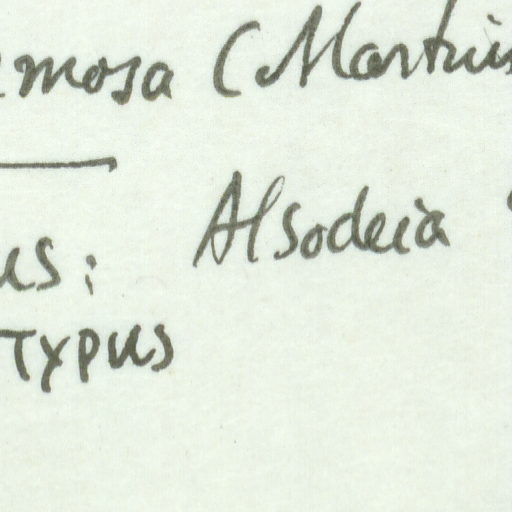 mosa (Martius
us: Alsodeia
Typus